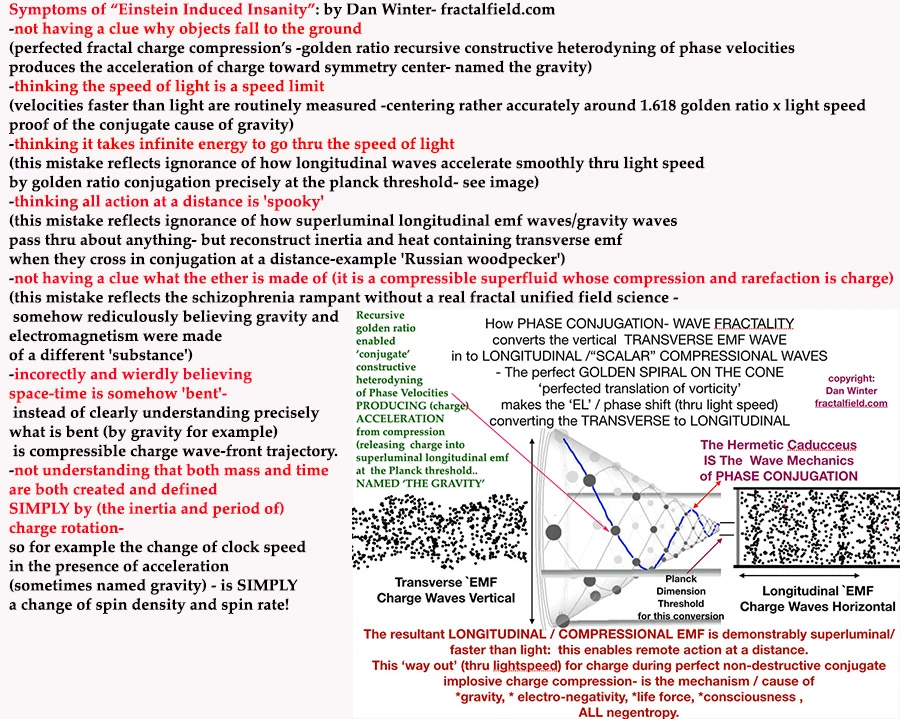 Symptoms of "Einstein Induced Insanity": by Dan Winter- fractalfield.com
-not having a clue why objects fall to the ground
(perfected fractal charge compression's -golden ratio recursive constructive heterodyning of phase velocities
produces the acceleration of charge toward symmetry center- named the gravity)
-thinking the speed of light is a speed limit
(velocities faster than light are routinely measured -centering rather accurately around 1.618 golden ratio x light speed
proof of the conjugate cause of gravity)
-thinking it takes infinite energy to go thru the speed of light
(this mistake reflects ignorance of how longitudinal waves accelerate smoothly thru light speed
by golden ratio conjugation precisely at the planck threshold- see image)
-thinking all action at a distance is 'spooky'
(this mistake reflects ignorance of how superluminal longitudinal emf waves/gravity waves
pass thru about anything- but reconstruct inertia and heat containing transverse emf
when they cross in conjugation at a distance-example 'Russian woodpecker')
-not having a clue what the ether is made of (it is a compressible superfluid whose compression and rarefaction is charge)
(this mistake reflects the schizophrenia rampant without a real fractal unified field science -
somehow rediculously believing gravity and
electromagnetism were made
of a different 'substance')
-incorectly and wierdly believing
space-time is somehow 'bent'-
instead of clearly understanding precisely
what is bent (by gravity for example)
is compressible charge wave-front trajectory.
-not understanding that both mass and time
are both created and defined
SIMPLY by (the inertia and period of)
charge rotation-
so for example the change of clock speed
in the presence of acceleration
(sometimes named gravity) - is SIMPLY
a change of spin density and spin rate!
Recursive
golden ratio
enabled
'conjugate'
constructive
heterodyning
of Phase Velocities
PRODUCING (charge)
ACCELERATION
from compression
(releasing charge into
superluminal longitudinal emf
at the Planck threshold..
NAMED 'THE GRAVITY'
How PHASE CONJUGATION- WAVE FRACTALITY
converts the vertical TRANSVERSE EMF WAVE
in to LONGITUDINAL /"SCALAR" COMPRESSIONAL WAVES
- The perfect GOLDEN SPIRAL ON THE CONE
'perfected translation of vorticity'
makes the 'EL' / phase shift (thru light speed)
converting the TRANSVERSE to LONGITUDINAL
copyright:
Dan Winter
fractalfield.com
The Hermetic Caducceus
IS The Wave Mechanics
of PHASE CONJUGATION
Transverse `EMF
Charge Waves Vertical
Planck
Dimension
Threshold
for this conversion
Longitudinal `EMF
Charge Waves Horizontal
The resultant LONGITUDINAL / COMPRESSIONAL EMF is demonstrably superluminal/
faster than light: this enables remote action at a distance.
This 'way out' (thru lightspeed) for charge during perfect non-destructive conjugate
implosive charge compression- is the mechanism / cause of
*gravity, * electro-negativity, *life force, *consciousness ,
ALL negentropy.